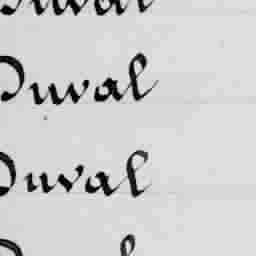 Duval
Duval
Duval